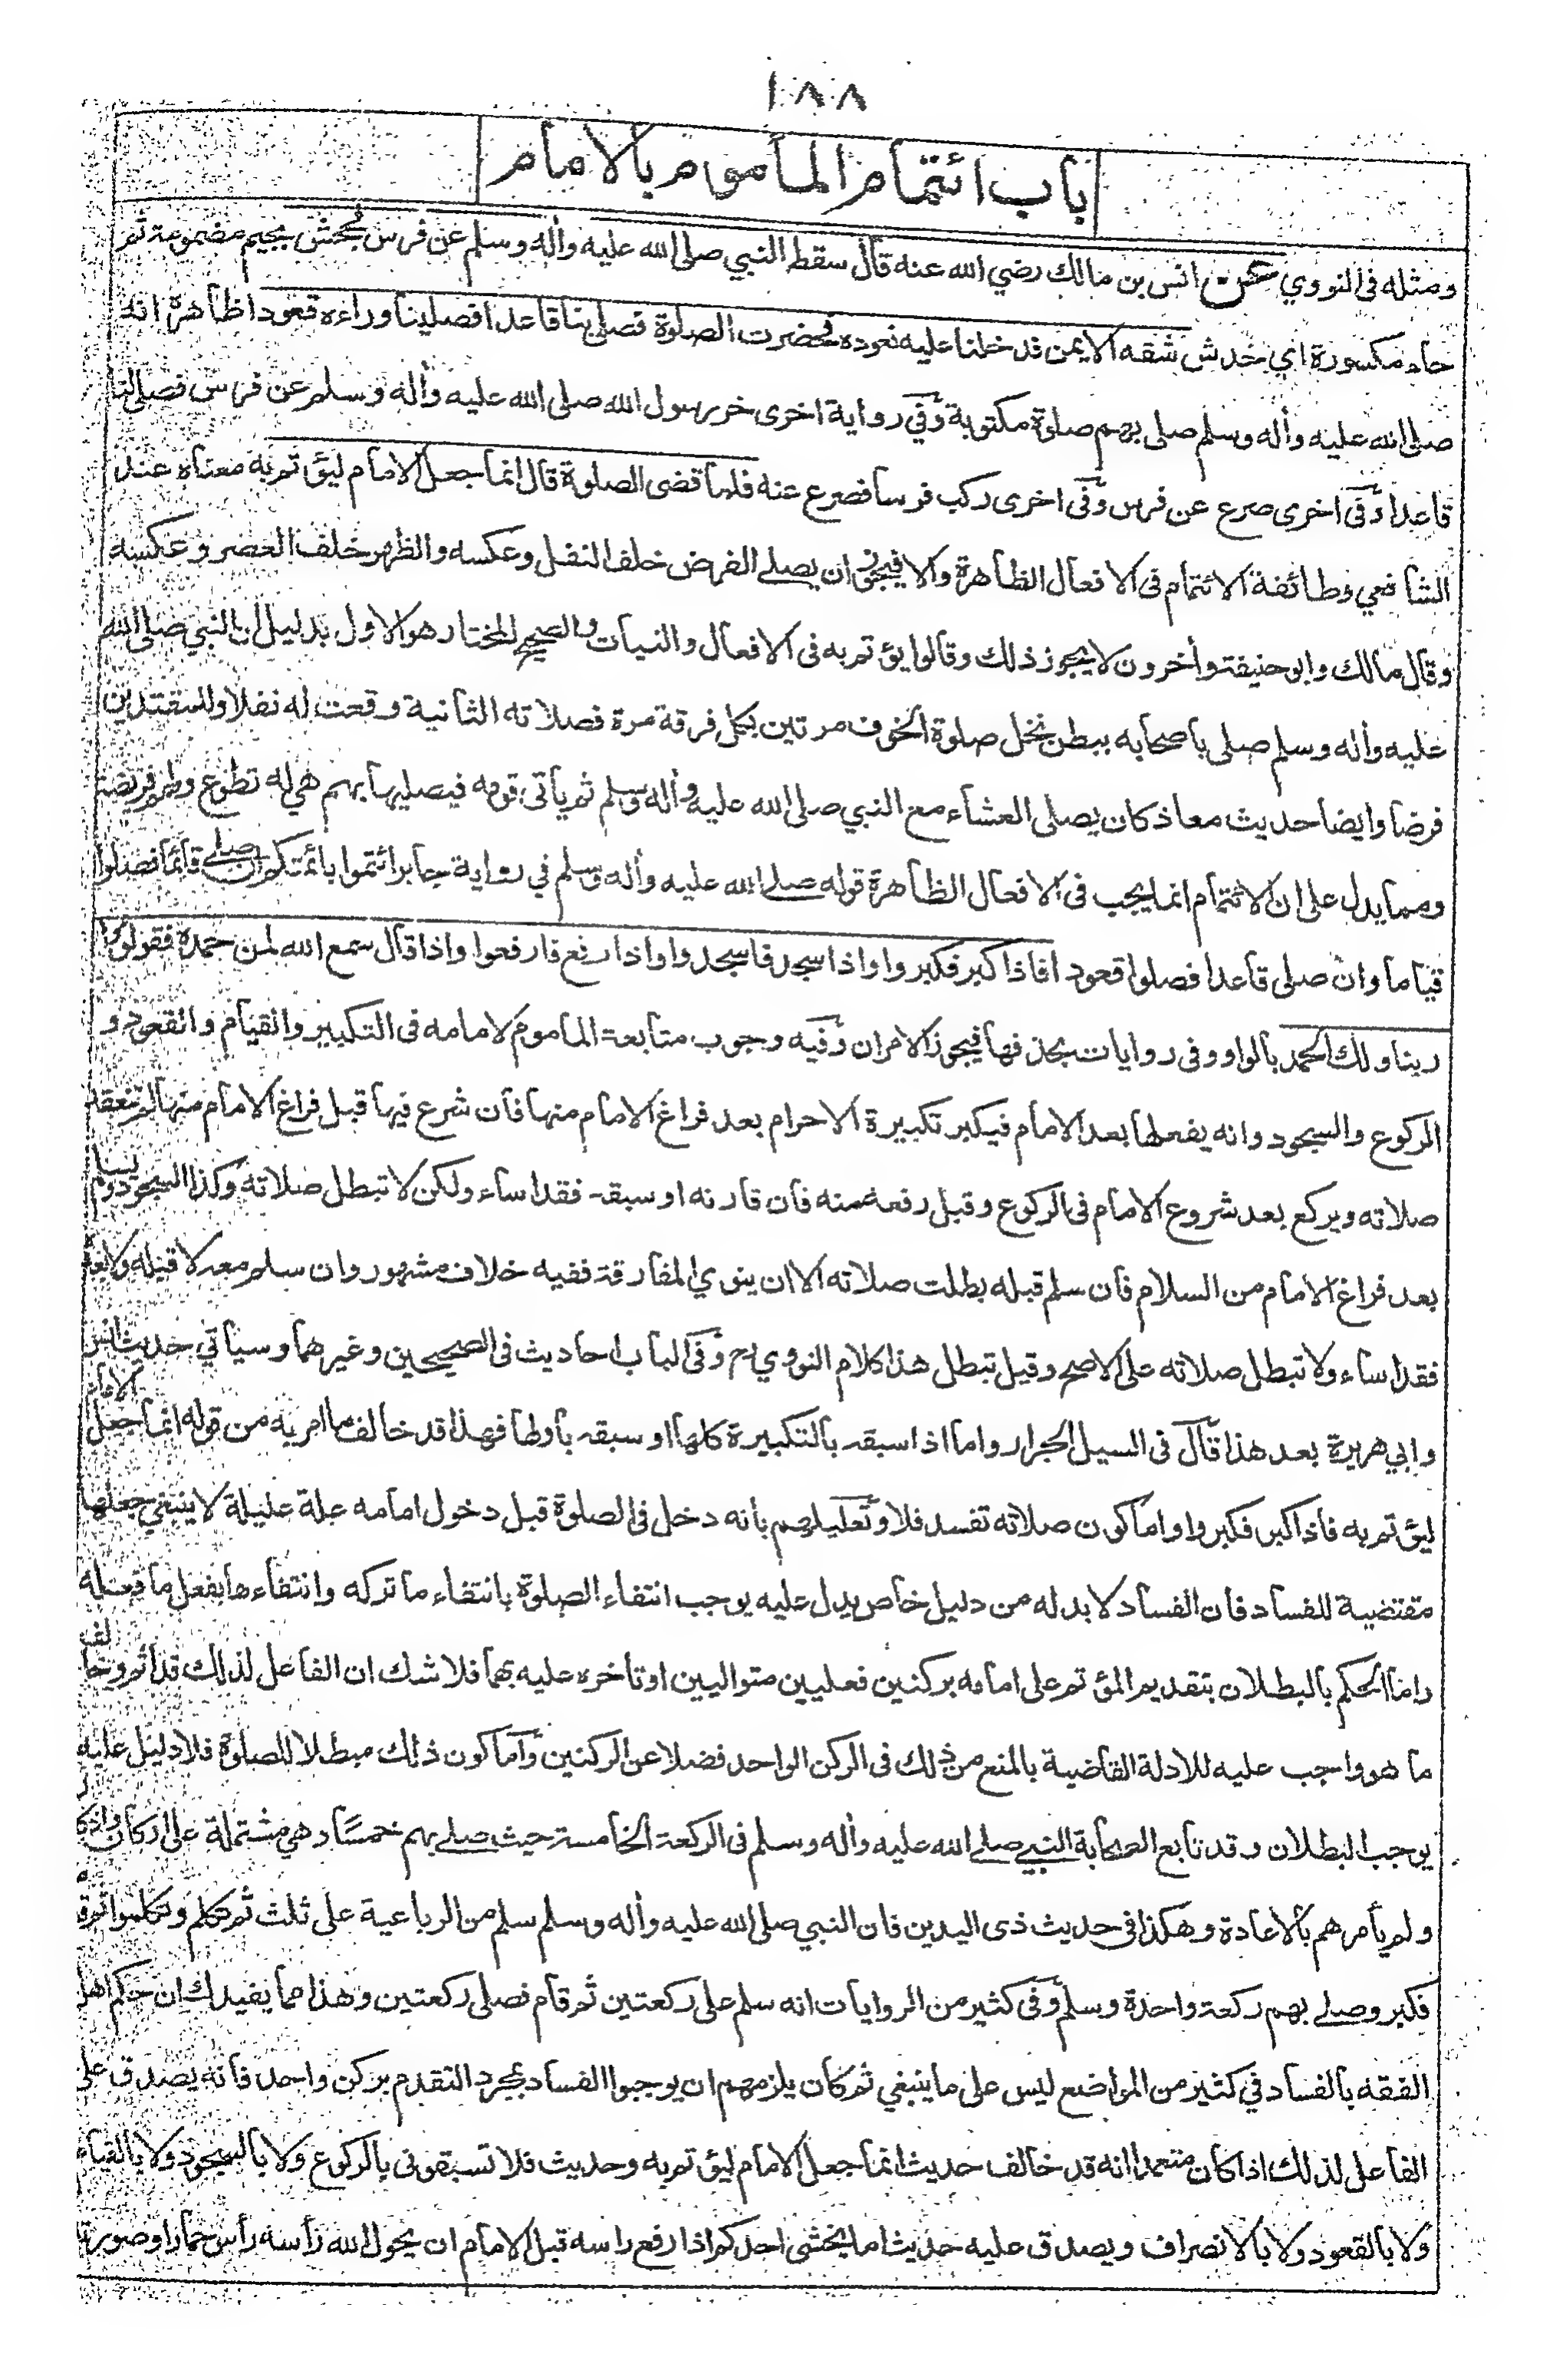 ١٨٨
باب ائتمام المأموم بالامام
ومثله فى النووي عن انس بن مالك رضي الله عنه قال سقط النبي صلى الله عليه واٰله وسلم عن فرس فجحش بجيم مضمومة ثم
حاء مكسورة اي خدش شقه الايمن فدخلنا عليه نعوده فحضرت الصلوة فصلى بنا قاعدا فصلينا وراءه قعودا ظاهره انه
صلى الله عليه واٰله وسلم صلى بهم صلوة مكتوبة وفي رواية اخرى خر رسول الله صلى الله عليه واٰله وسلم عن فرس فصلى لنا
قاعدا وفى اخرى صرع عن فرس وفى اخرى ركب فرسا فصرع عنه فلما قضى الصلوة قال انما جعل الامام ليؤتم به معناه عند
الشافعي وطائفة الائتمام فى الافعال الظاهرة والا فيجوز ان يصلي الفرض خلف النفل وعكسه والظهر خلف العصر وعكسه
وقال مالك وابو حنيفة واٰخرون لا يجوز ذلك وقالوا يؤتم به فى الافعال والنيات والصحيح المختار هو الاول بدليل ان النبي صلى الله
عليه واٰله وسلم صلى باصحابه ببطن نخل صلوة الخوف مرتين بكل فرقة مرة فصلاته الثانية وقعت له نفلا وللمقتدين
فرضا وايضا حديث معاذ كان يصلى العشاء مع النبي صلى الله عليه واٰله وسلم ثم ياتى قومه فيصليها بهم هي له تطوع ولهم فريضة
ومما يدل على ان الائتمام انما يجب فى الافعال الظاهرة قوله صلى الله عليه واٰله وسلم في رواية جابر ائتموا بائمتكم ان صلى قائما فصلوا
قياما وان صلى قاعدا فصلوا قعودا فاذا كبر فكبروا واذا سجد فاسجدوا واذا رفع فارفعوا واذا قال سمع الله لمن حمده فقولوا
ربنا ولك الحمد بالواو وفى روايات بحذفها فيجوز الامران وفيه وجوب متابعة الماموم لامامه فى التكبير والقيام والقعود و
الركوع والسجود وانه يفعلها بعد الامام فيكبر تكبيرة الاحرام بعد فراغ الامام منها فان شرع فيها قبل فراغ الامام منها لم تنعقد
صلاته ويركع بعد شروع الامام فى الركوع وقبل رفعه منه فان قارنه او سبقه فقد اساء ولكن لا تبطل صلاته وكذا السجود ويسلم
بعد فراغ الامام من السلام فان سلم قبله بطلت صلاته الا ان ينوي المفارقة ففيه خلاف مشهور وان سلم معه لا قبله ولا بعده
فقد اساء ولا تبطل صلاته على الاصح وقيل تبطل هذا كلام النووي رح وفى الباب احاديث فى الصحيحين وغيرهما وسياتي حديث انس
وابي هريرة بعد هذا قال فى السيل الجرار واما اذا سبقه بالتكبيرة كلها او سبقه باولها فهذا قد خالف ما امر به من قوله انما جعل الامام
ليؤتم به فاذا كبر فكبروا واما كون صلاته تفسد فلا وتعليلهم بانه دخل فى الصلوة قبل دخول امامه علة عليلة لا ينبغي جعلها
مقتضية للفساد فان الفساد لا بد له من دليل خاص يدل عليه يوجب انتفاء الصلوة بانتفاء ما تركه وانتفاءها بفعل ما فعله
واما الحكم بالبطلان بتقديم المؤتم على امامه بركنين فعليين متواليين او تاخره عليه بهما فلا شك ان الفاعل لذلك قد اثم وخالف
ما هو واجب عليه للادلة القاضية بالمنع من ذلك فى الركن الواحد فضلا عن الركنين واما كون ذلك مبطلا للصلوة فلا دليل عليه
يوجب البطلان وقد تابع الصحابة النبي صلى الله عليه واٰله وسلم فى الركعة الخامسة حيث صلى بهم خمسًا وهي مشتملة على اركان واذكار
ولم يأمرهم بالاعادة وهكذا فى حديث ذى اليدين فان النبي صلى الله عليه واٰله وسلم سلم من الرباعية على ثلث ثم تكلم وتكلموا ثم قام
فكبر وصلى بهم ركعة واحدة وسلم وفى كثير من الروايات انه سلم على ركعتين ثم قام فصلى ركعتين وهذا مما يفيدك ان حكم اهل
الفقه بالفساد في كثير من المواضع ليس على ما ينبغي ثم كان يلزمهم ان يوجبوا الفساد بمجرد التقدم بركن واحد فانه يصدق على
الفاعل لذلك اذا كان متعمدا انه قد خالف حديث انما جعل الامام ليؤتم به وحديث فلا تسبقونى بالركوع ولا بالسجود ولا بالقيام
ولا بالقعود ولا بالانصراف ويصدق عليه حديث اما يخشى احدكم اذا رفع راسه قبل الامام ان يحول الله رأسه رأس حمار او صورته